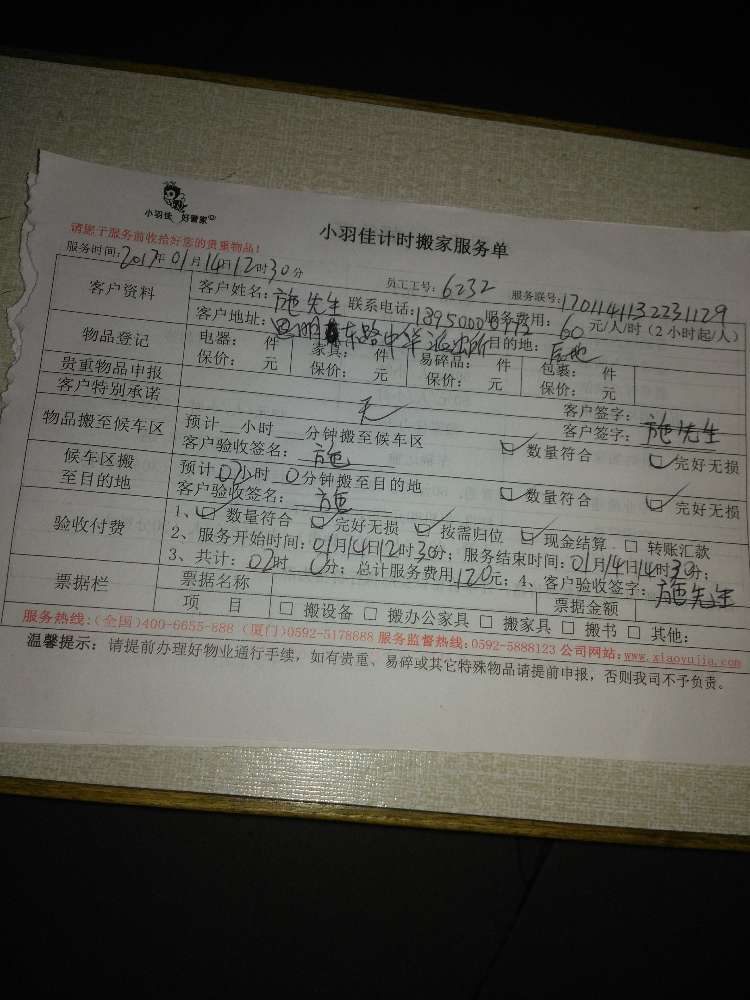 小羽佳 好管家
小羽佳计时搬家服务单
请您于服务前收拾好您的贵重物品!
服务时间:2017年01月14日12时30分 员工工号:6232 服务联号:1701141132231129
客户资料 客户姓名:施先生 联系电话: 服务费用:60元/人/时(2小时起/人)
客户地址: 目的地:
物品登记 电器: 件 家具: 件 易碎品: 件 包裹: 件
保价: 元 保价: 元 保价: 元 保价: 元
贵重物品申报 无 客户签字:
客户特别承诺 客户签字:施先生
物品搬至候车区 预计__小时___分钟搬至候车区 数量符合 完好无损
客户验收签名:施
候车区搬至目的地 预计02小时 0分钟搬至目的地 数量符合 完好无损
客户验收签名:施
验收付费 1、数量符合 完好无损 按需归位 现金结算 转账汇款
2、服务开始时间:01月14日12时30分;服务结束时间:01月14日14时30分;
3、共计:02时 0分;总计服务费用120元;4、客户验收签字:施先生
票据栏 票据名称 票据金额
项 目 □ 搬设备 □ 搬办公家具 □ 搬家具 □ 搬书 □ 其他:
服务热线:(全国)400-6655-888 (厦门)0592-5178888 服务监督热线:0592-5888123 公司网站:www.xiaoyujia.com
温馨提示:请提前办理好物业通行手续,如有贵重、易碎或其它特殊物品请提前申报,否则我司不予负责。